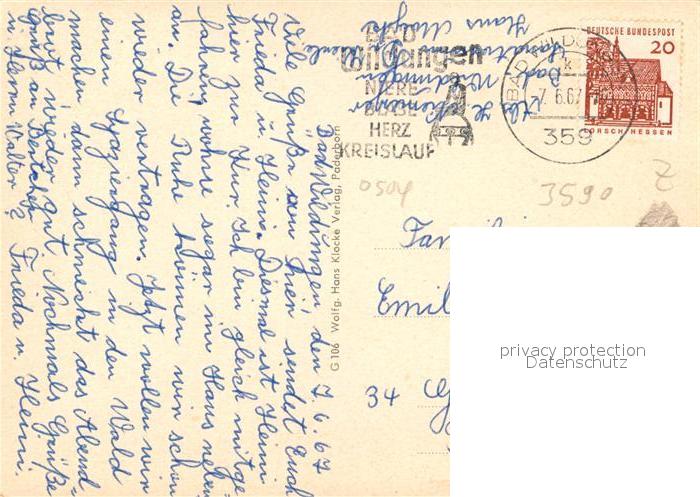 Bad Wildungen, den 7. 6. 67
Viele Grüße von hier sendet Euch
Frieda u. Heini. Diesmal ist Heini
hier zur Kur. Ich bin gleich mitge-
fahren, wohne sogar im Haus neben-
an. Die Ruhe können wir schon
wieder vertragen. Jetzt wollen wir
einen Spaziergang in den Wald
machen, dann schmeckt das Abend-
brot wieder gut. Nochmals Grüße
Frieda u. Heini.
Gruß an Bertchen
u. Herrn Walter
Hans
Bad
BAD
Wildungen
NIERE
BLASE
HERZ
KREISLAUF
BAD WILDUNGEN
-7. 6. 67
359
DEUTSCHE BUNDESPOST
20
LORSCH-HESSEN
0504
3590
Z
G 106 Wolfg. Hans Klocke Verlag, Paderborn
Fam
Emil
34
privacy protection
Datenschutz